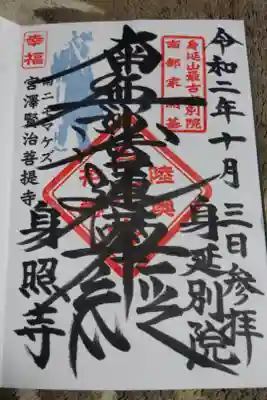 令和二年十月三日参拝
身延山最古別院
南部家開基
身延別院
南無妙法蓮華経
陸奥
幸福
雨ニモマケズ
宮澤賢治菩提寺
身照寺